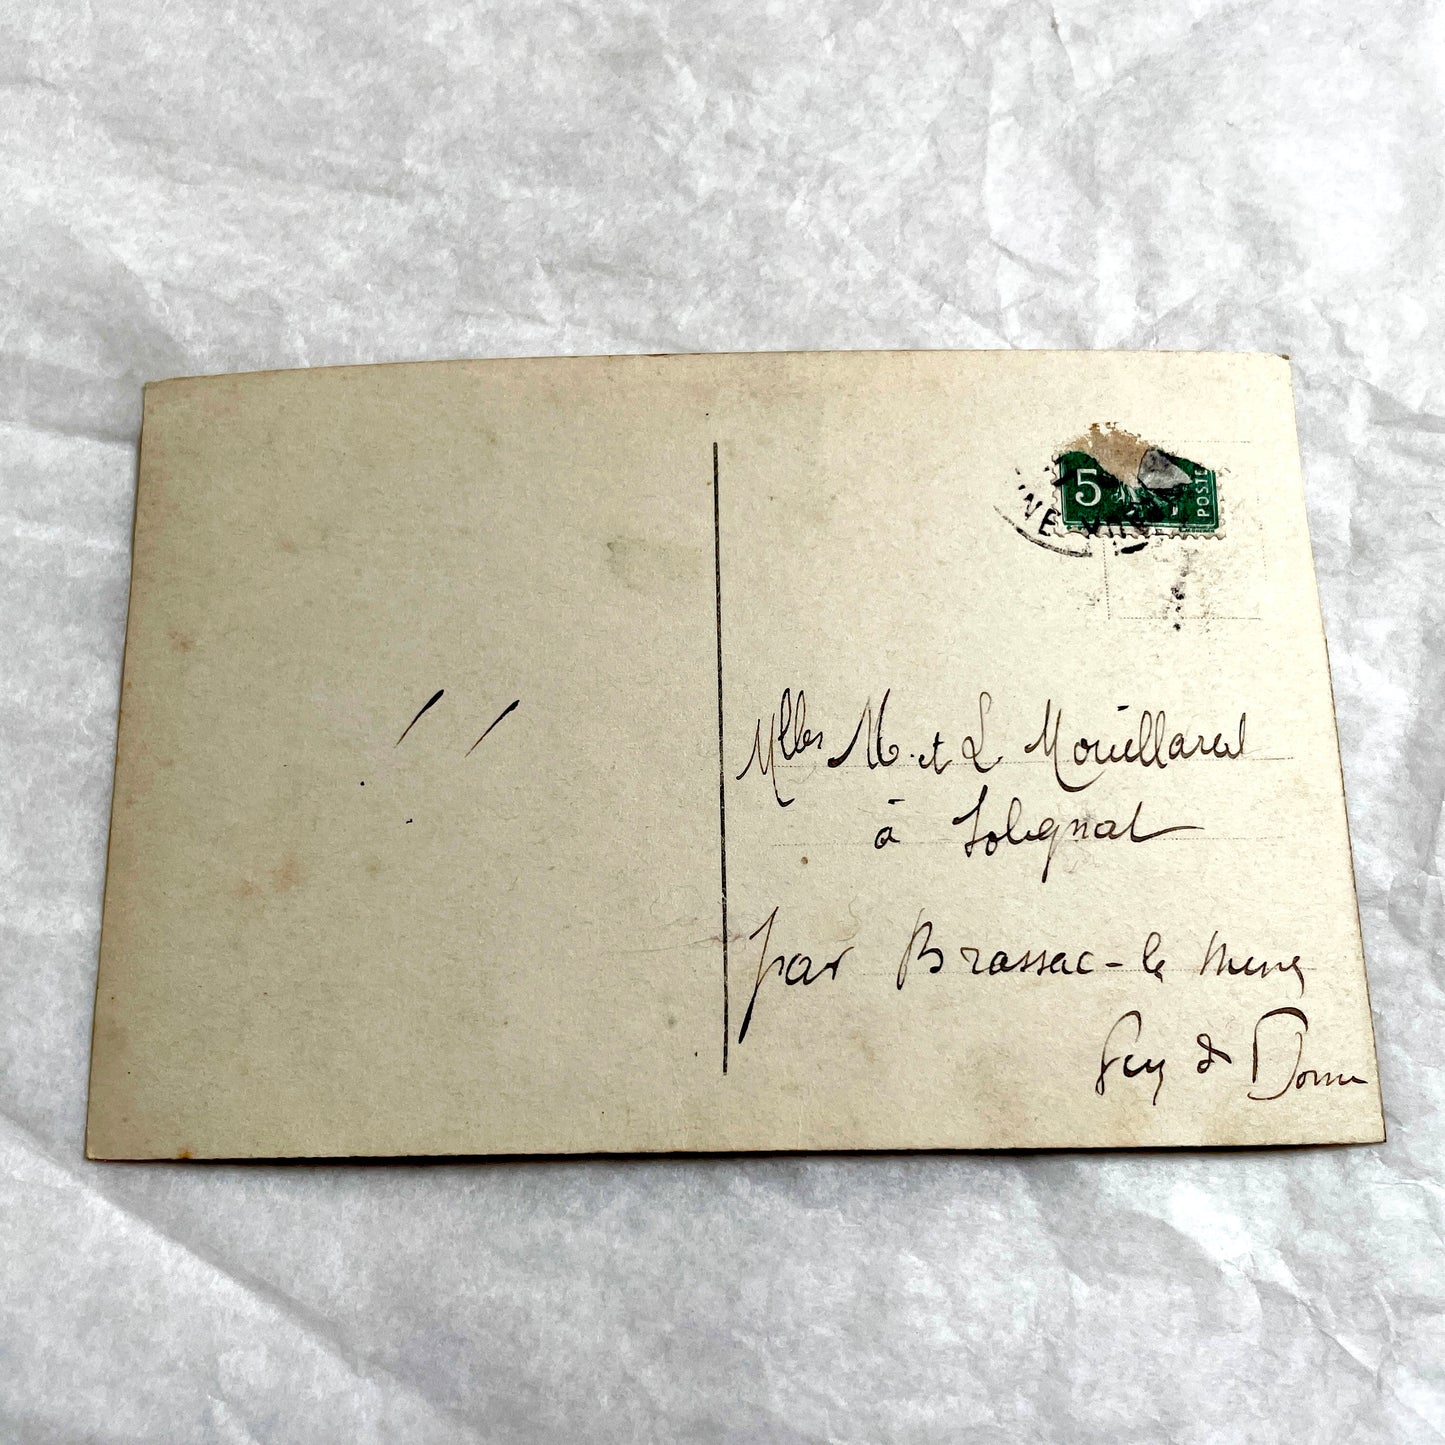 5
POSTE
NE
Mlles M. et L Mouillard
à Solignat
par Brassac-le mines
Puy de Dome